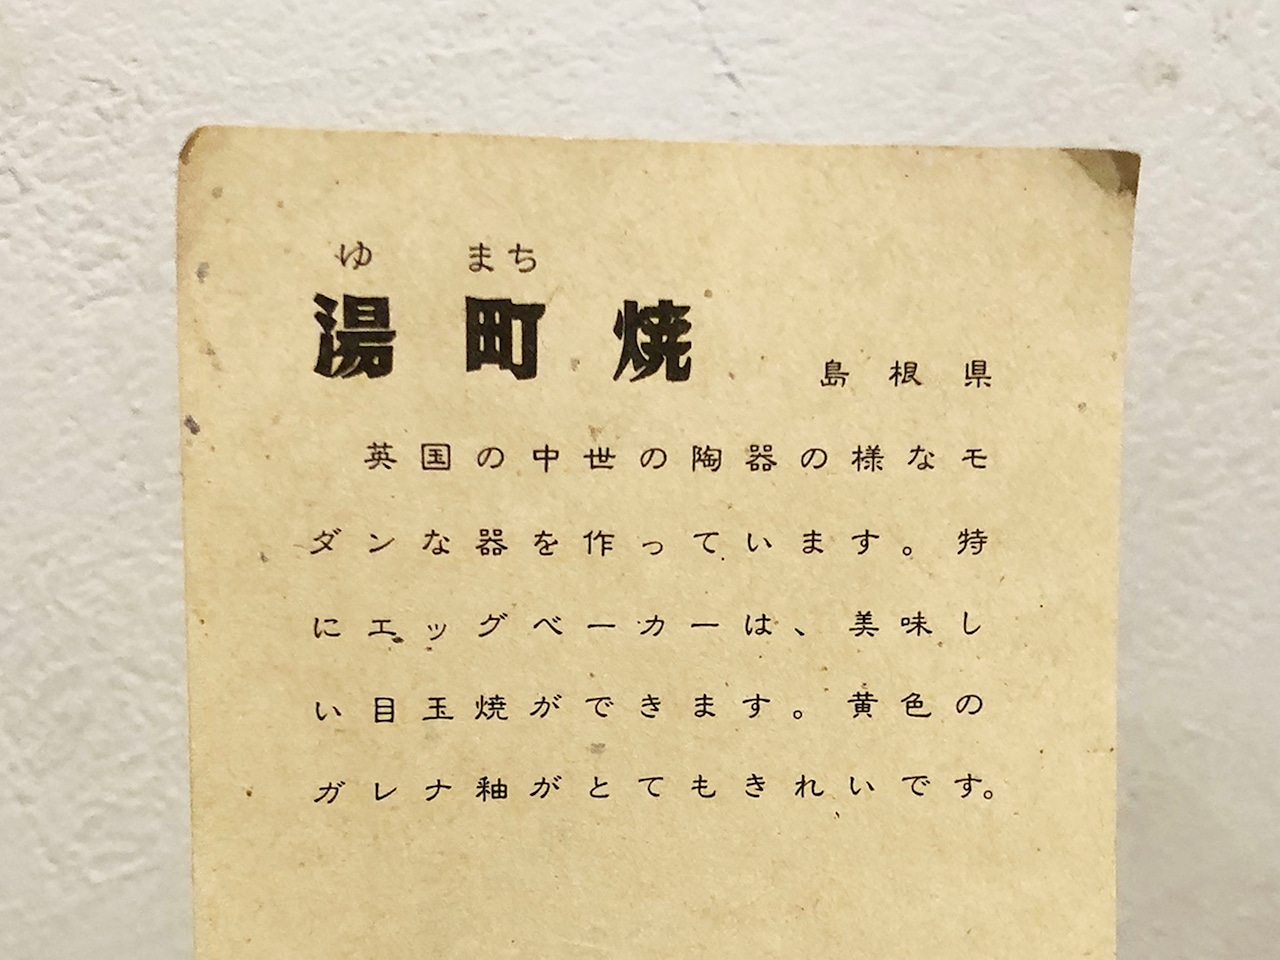 ゆ まち
湯町焼 島根県
英国の中世の陶器の様なモ
ダンな器を作っています。特
にエッグベーカーは、美味し
い目玉焼ができます。黄色の
ガレナ釉がとてもきれいです。